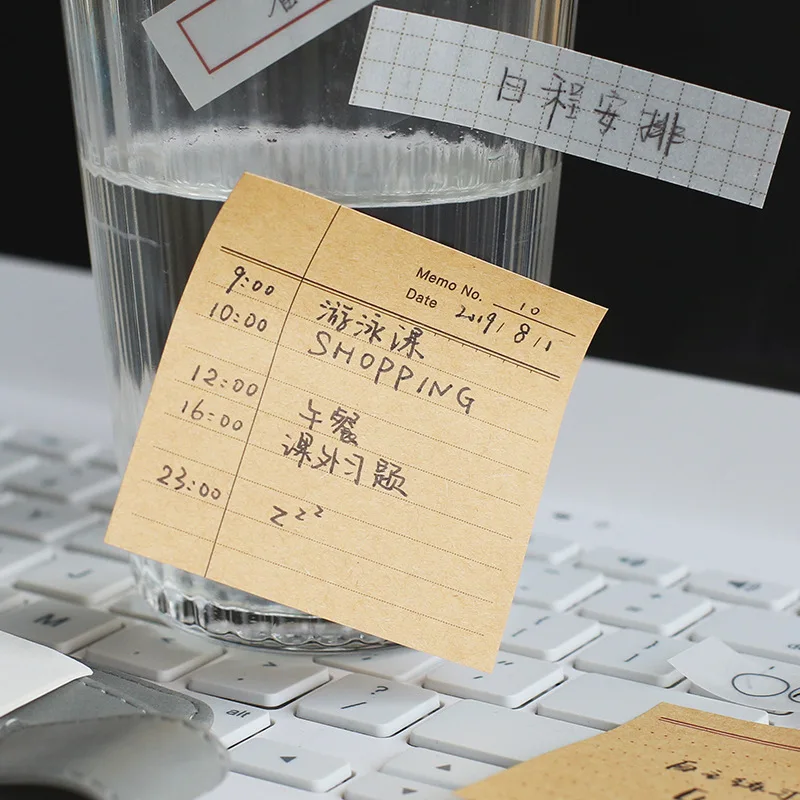 日程安排
Memo No. 10
Date 2019/8/1
9:00 游泳课
10:00 SHOPPING
12:00 午餐
16:00 课外习题
23:00 zzz
M
alt
?